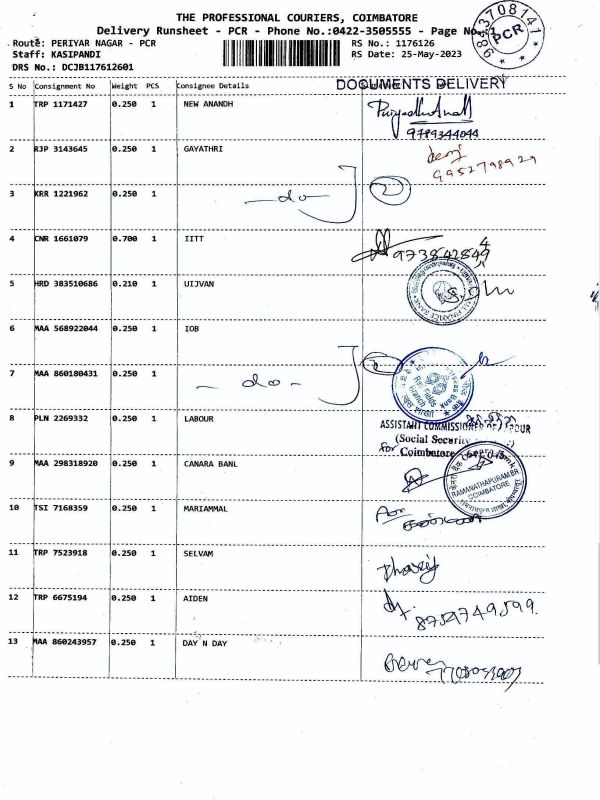 THE PROFESSIONAL COURIERS, COIMBATORE
Delivery Runsheet - PCR - Phone No.:0422-3505555 - Page No.:
9843708141
PCR
Route: PERIYAR NAGAR - PCR
RS No.: 1176126
Staff: KASIPANDI
RS Date: 25-May-2023
DRS No.: DCJB117612601
DOCUMENTS DELIVERY
S No Consignment No Weight PCS Consignee Details
1 TRP 1171427 0.250 1 NEW ANANDH
9789344044
2 RJP 3143645 0.250 1 GAYATHRI
9952798929
3 KRR 1221962 0.250 1
-do-
4 CNR 1661079 0.700 1 IITT
5 HRD 383510686 0.210 1 UIJVAN
6 MAA 568922044 0.250 1 IOB
7 MAA 860180431 0.250 1
-do-
8 PLN 2269332 0.250 1 LABOUR
ASSISTANT COMMISSIONER OF LABOUR
(Social Security
for Coimbatore
9 MAA 298318920 0.250 1 CANARA BANL
RAMANATHAPURAM BR
COIMBATORE
10 TSI 7168359 0.250 1 MARIAMMAL
11 TRP 7523918 0.250 1 SELVAM
12 TRP 6675194 0.250 1 AIDEN
8759749599
13 MAA 860243957 0.250 1 DAY N DAY